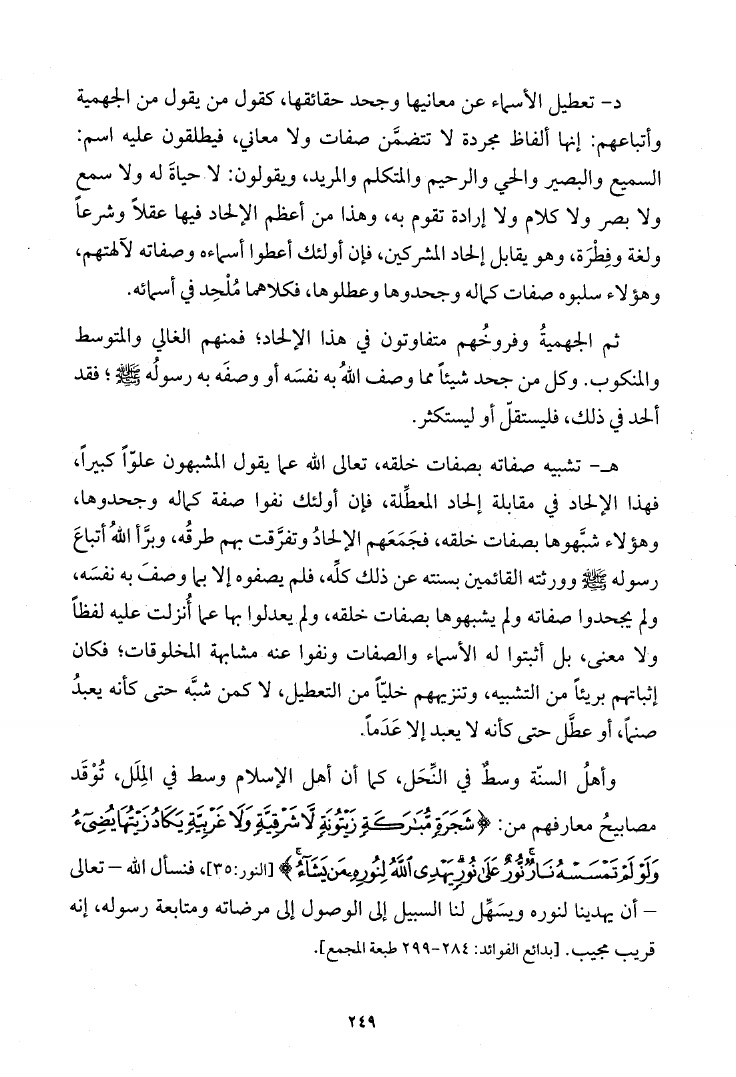 د- تعطيل الأسماء عن معانيها وجحد حقائقها، كقول من يقول من الجهمية
وأتباعهم: إنها ألفاظ مجردة لا تتضمَّن صفات ولا معاني، فيطلقون عليه اسم:
السميع والبصير والحي والرحيم والمتكلم والمريد، ويقولون: لا حياةَ له ولا سمع
ولا بصر ولا كلام ولا إرادة تقوم به، وهذا من أعظم الإلحاد فيها عقلاً وشرعاً
ولغة وفِطْرَة، وهو يقابل إلحاد المشركين، فإن أولئك أعطوا أسماءه وصفاته لآلهتهم،
وهؤلاء سلبوه صفات كماله وجحدوها وعطلوها، فكلاهما مُلْحِد في أسمائه.
ثم الجهميةُ وفروخُهم متفاوتون في هذا الإلحاد؛ فمنهم الغالي والمتوسط
والمنكوب. وكل من جحد شيئاً مما وصف اللهُ به نفسَه أو وصفَه به رسولُه ﷺ؛ فقد
ألحد في ذلك، فليستقلّ أو ليستكثر.
هـ- تشبيه صفاته بصفات خلقه، تعالى الله عما يقول المشبهون علوّاً كبيراً،
فهذا الإلحاد في مقابلة إلحاد المعطِّلة، فإن أولئك نفوا صفة كماله وجحدوها،
وهؤلاء شبَّهوها بصفات خلقه، فجمَعَهم الإلحادُ وتفرَّقت بهم طرقُه، وبرَّأ اللهُ أتباعَ
رسوله ﷺ وورثته القائمين بسنته عن ذلك كلِّه، فلم يصفوه إلا بما وصفَ به نفسَه،
ولم يجحدوا صفاته ولم يشبهوها بصفات خلقه، ولم يعدلوا بها عما أُنزلت عليه لفظاً
ولا معنى، بل أثبتوا له الأسماء والصفات ونفوا عنه مشابهة المخلوقات؛ فكان
إثباتهم بريئاً من التشبيه، وتنزيههم خليّاً من التعطيل، لا كمن شبَّه حتى كأنه يعبدُ
صنماً، أو عطَّل حتى كأنه لا يعبد إلا عَدَماً.
وأهلُ السنّة وسطٌ في النِّحَل، كما أن أهل الإسلام وسط في المِلَل، تُوْقَد
مصابيحُ معارفهم من: ﴿شَجَرَةٍ مُّبَارَكَةٍ زَيْتُونَةٍ لَّا شَرْقِيَّةٍ وَلَا غَرْبِيَّةٍ يَكَادُ زَيْتُهَا يُضِيٓءُ
وَلَوْ لَمْ تَمْسَسْهُ نَارٌ نُّورٌ عَلَىٰ نُورٍ يَهْدِى ٱللَّهُ لِنُورِهِۦ مَن يَشَآءُ﴾ [النور:٣٥]، فنسأل الله – تعالى
– أن يهدينا لنوره ويسَهِّل لنا السبيل إلى الوصول إلى مرضاته ومتابعة رسوله، إنه
قريب مجيب. [بدائع الفوائد: ٢٨٤-٢٩٩ طبعة المجمع].
٢٤٩